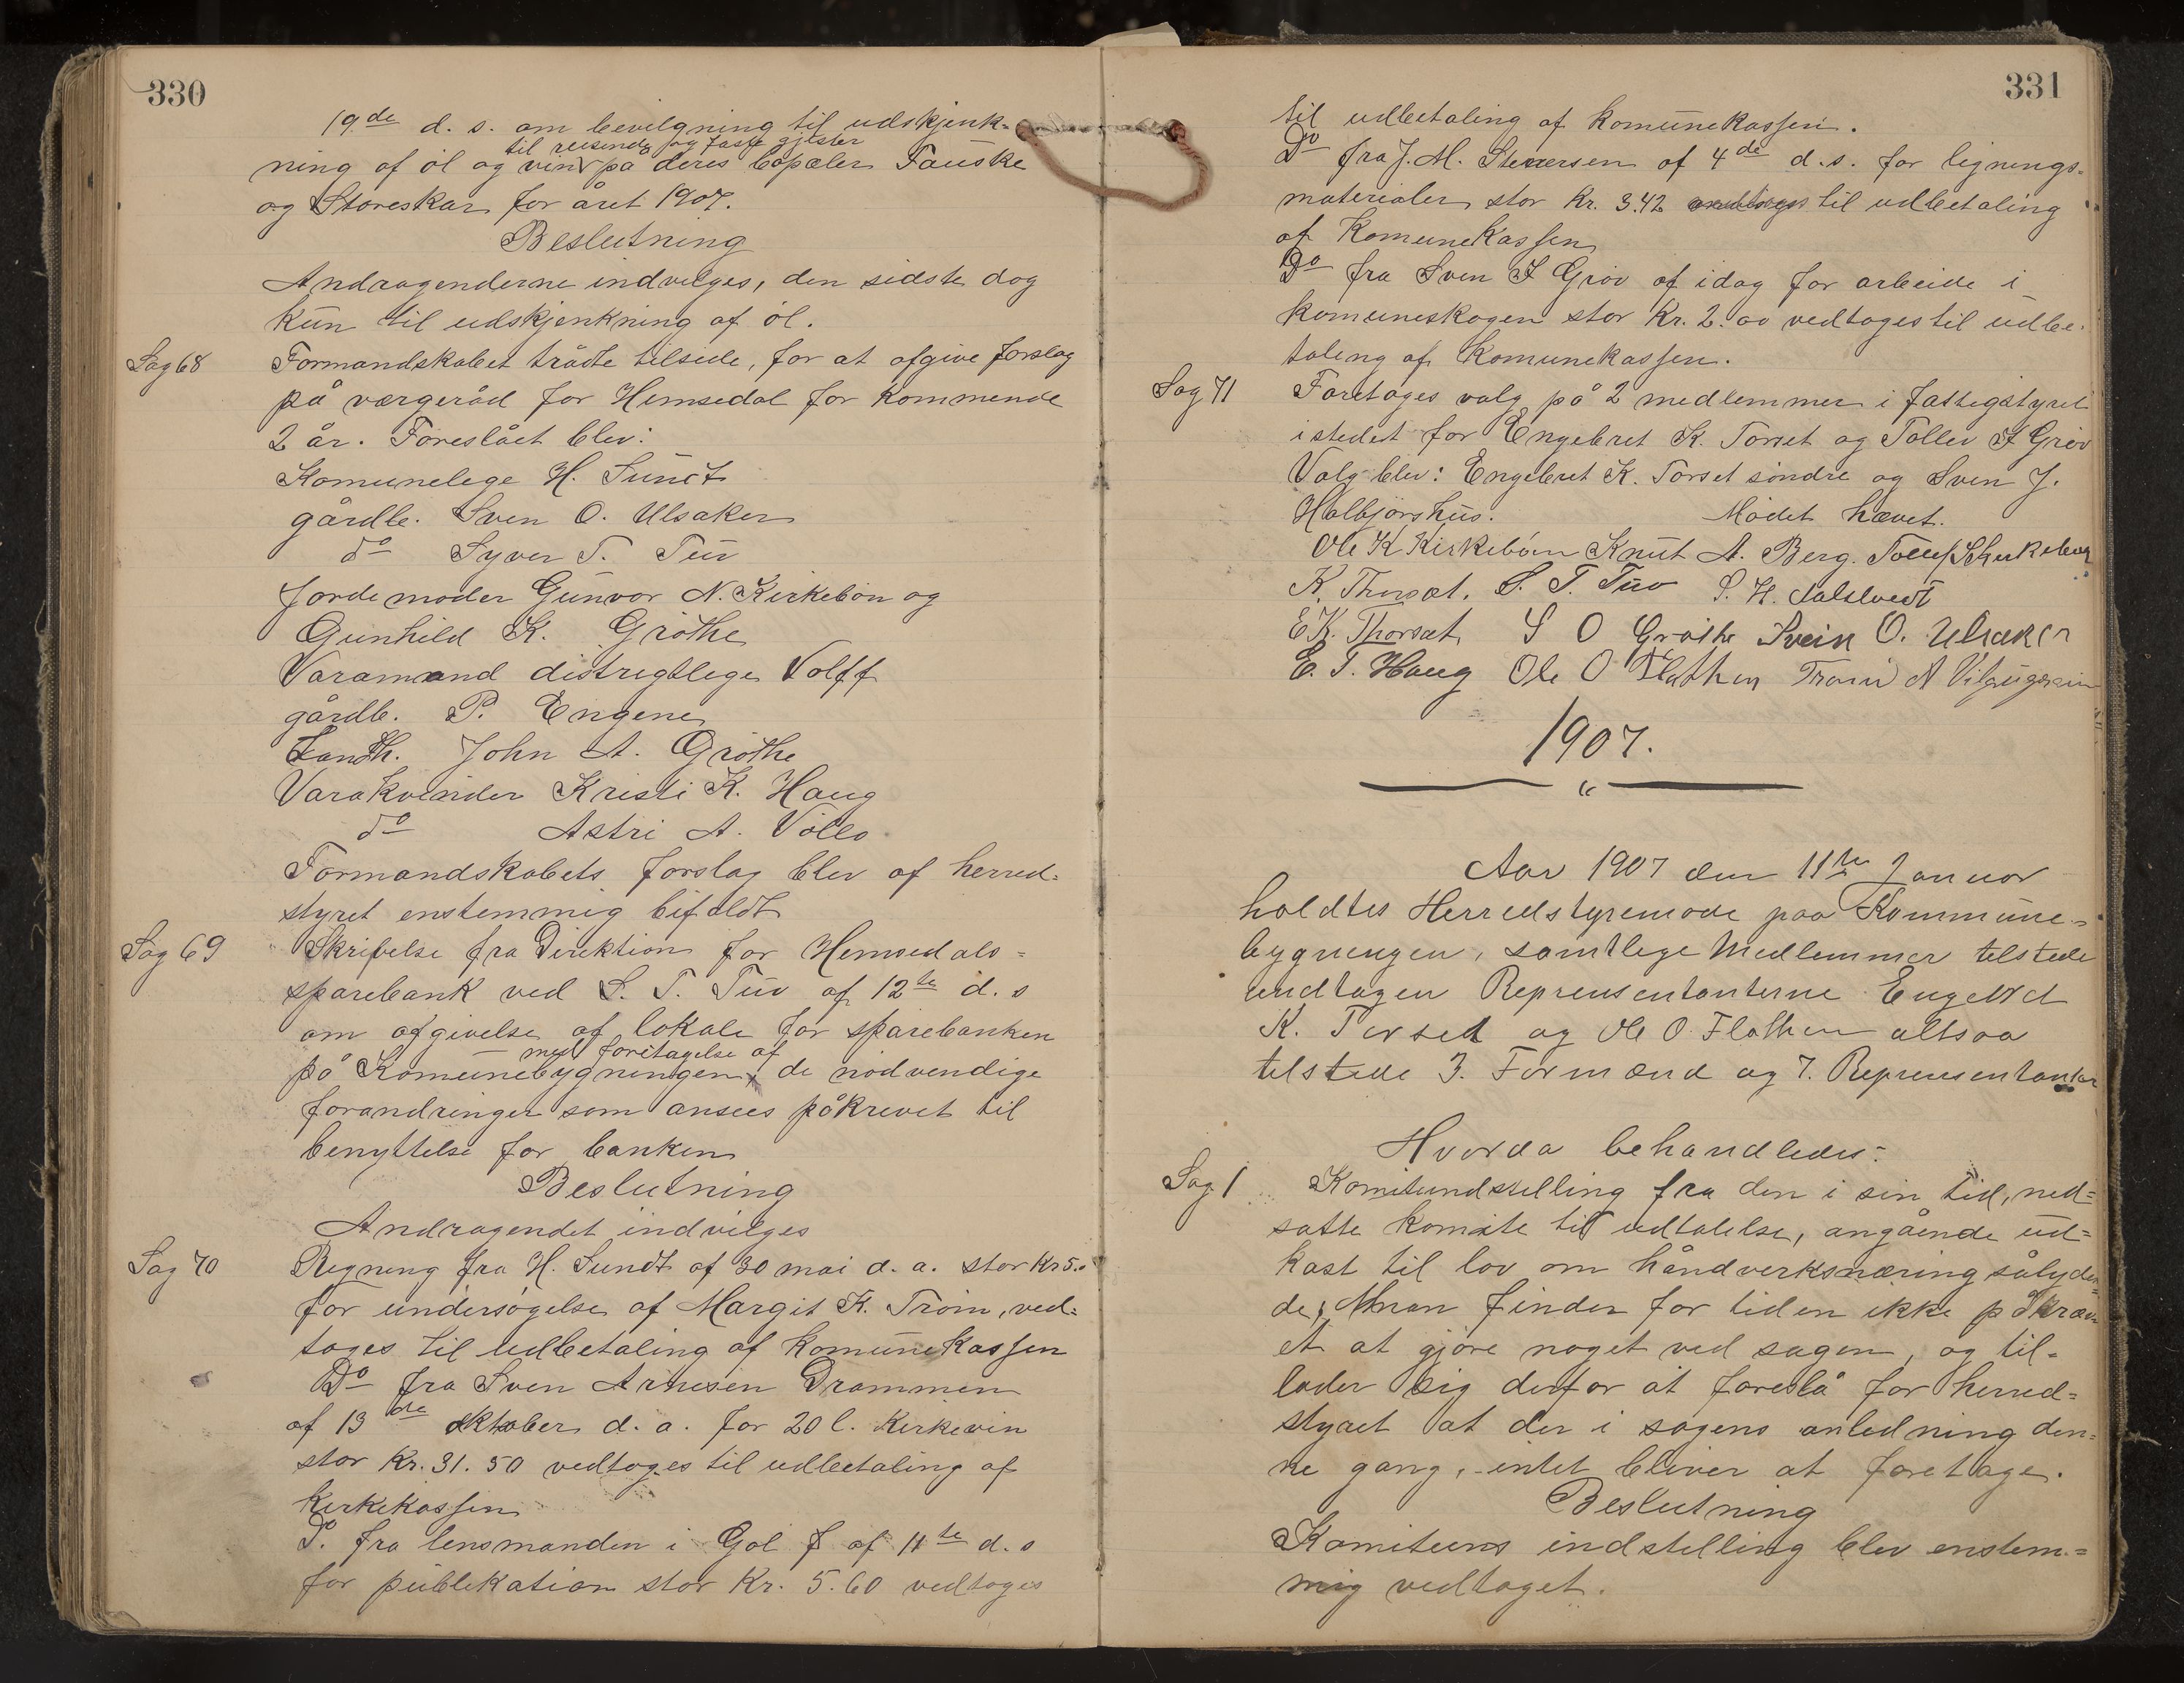 330
19de d. s. om bevilgning til udskjenk-
til reisende og faste gjester
ning af øl og vin på deres bopæler Fauske
og Storeskar for året 1907.
Beslutning
Andragenderne indvilges, den sidste dog
kun til udskjenkning af øl.
Sag 68 Formandskabet trådte tilside, for at afgive forslag
på værgeråd for Hemsedal for kommende
2 år. Foreslået blev:
Komunelege H. Sundt
gårdb. Sven O. Ulsaker
do Syver T. Tuv
Jordemoder Gunvor N. Kirkebøn og
Gunhild K. Grøthe
Varamænd distrigtlege Volff
gårdb. P. Engene
Landh. John A. Grøthe
Varakvinder Kristi K. Haug
do Astri A. Vøllo
Formandskabets forslag blev af herred-
styret enstemmig bifaldt
Sag 69 Skrivelse fra Direktion for Hemsedals-
sparebank ved S. T. Tuv af 12te d. s
om afgivelse af lokale for sparebanken
med foretagelse af
på Komunebygningen x de nødvendige
forandringer som ansees påkrevet til
benyttelse for banken
Beslutning
Andragendet indvilges
Sag 70 Regning fra H. Sundt af 30 mai d. a. stor Kr 5.
for undersøgelse af Margit K. Trøim, ved-
tages til udbetaling af komunekassen
Do fra Sven Arnesen Drammen
af 13de oktober d. a. for 20 l. Kirkevin
stor Kr. 31.50 vedtoges til udbetaling af
Kirkekassen
Do. fra lensmanden i Gol af 11te d. s
for publikation stor Kr. 5.60 vedtoges
331
til udbetaling af komunekassen.
Do fra J. M. Stenersen af 4de d. s. for lignings-
materialer stor Kr. 3.42 til udbetaling
af Komunekassen
Do fra Sven S Grøv af idag for arbeide i
komuneskogen stor Kr. 2.00 vedtoges til udbe-
taling af komunekassen.
Sag 71 Foretages valg på 2 medlemmer i fattigstyret
istedet for Engebret K. Torset og Tollev S Grøv
Valg blev: Engebret K. Torset søndre og Sven J.
Halbjørshus. Mødet hævet.
Ole K Kirkebøen Knut A. Berg. Tollef
K. Thorset. S. T. Tuv S. H.
E K. Thorset S O Grøthe Svein O. Ulsaker
E. T. Haug Ole O Flathen Troin N
1907.
"
Aar 1907 den 11te Januar
holdtes Herredstyremøde paa Kommune-
bygningen, samtlege Medlemmer telstede
undtagen Reprensentanterne Engebrd
K. Torset og Ole O. Flathen altsaa
telstede 3. Formænd og 7. Reprensentanter
Hvorda behandledes:
Sag 1 Komiteindstilling fra den i sin tid, ned-
satte komite til udtalelse, angående ud-
kast til lov om håndverksnæring sålyden-
de; Man finder for tiden ikke påkræv
et at gjøre noget ved sagen, og til-
lader sig derfor at foreslå for herred-
styret at der i sagens anledning den-
ne gang, intet bliver at foretage.
Beslutning
Komiteens indstilling blev enstem-
mig vedtaget.